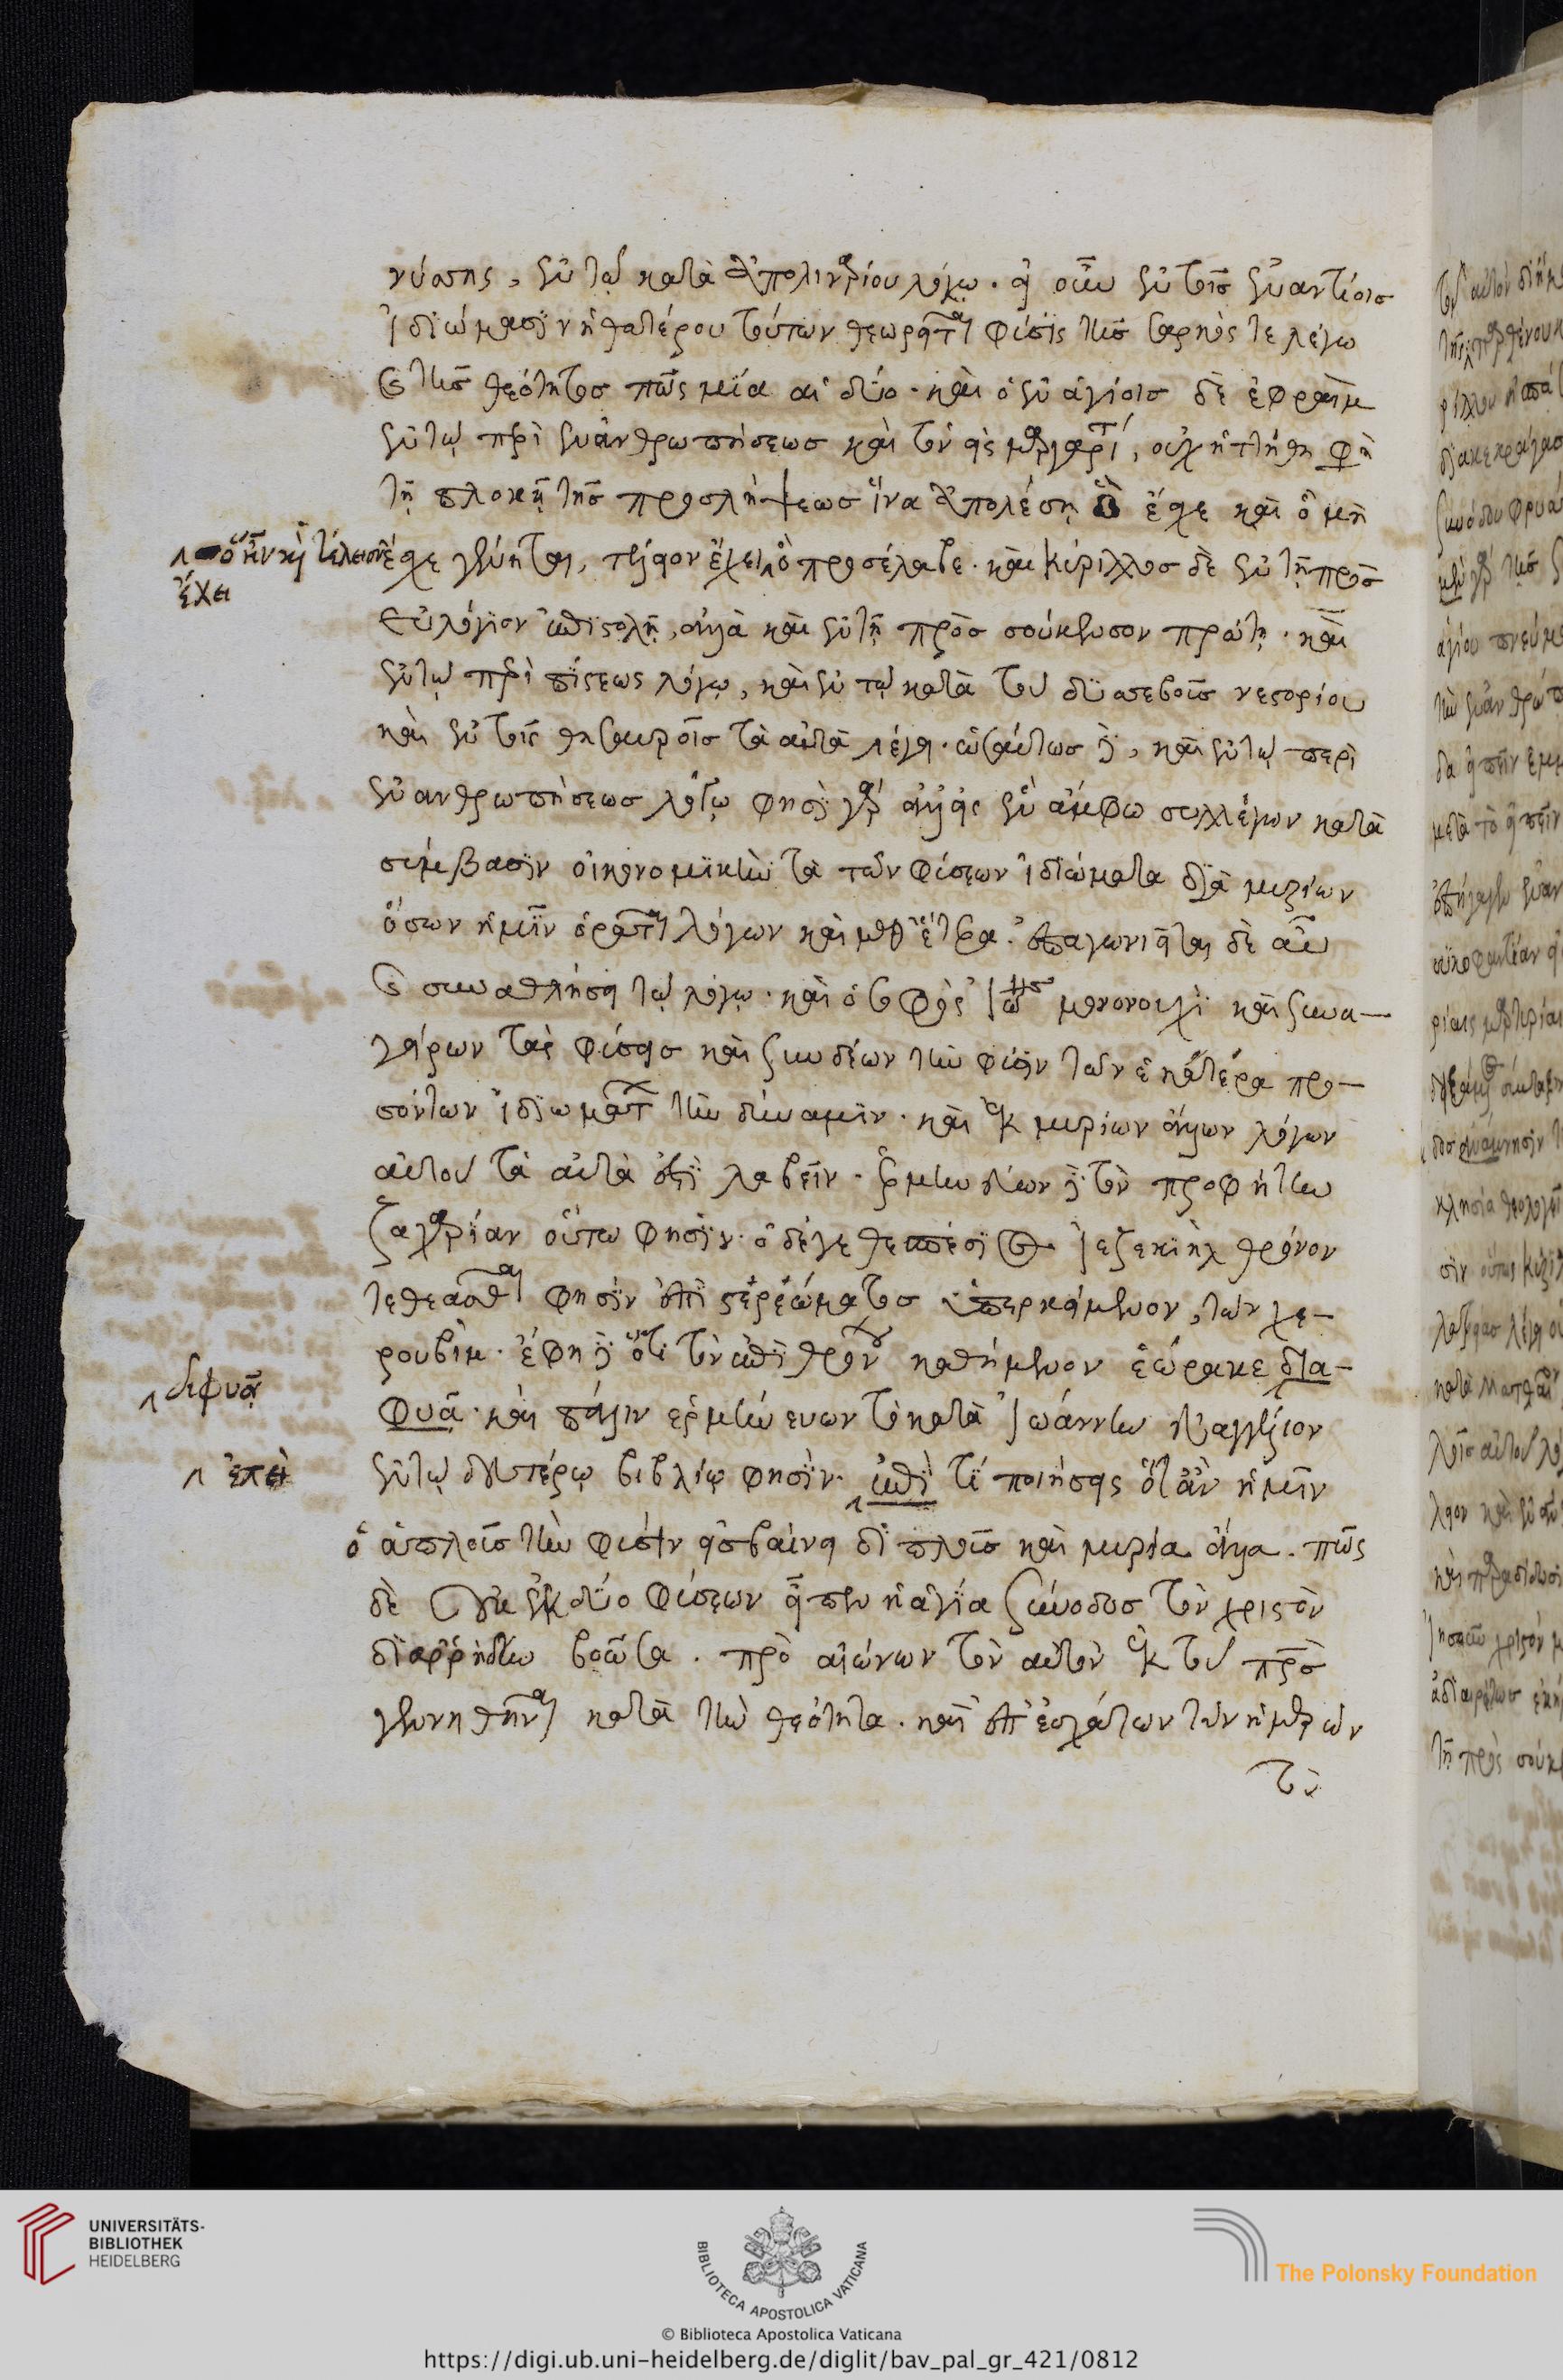 νύσσης, ἐν τῷ κατὰ Ἀπολιναρίου λόγῳ. εἰ οὖν ἐν τοῖς ἐναντίοισ
ἰδιώμασιν ἡ θατέρου τούτων θεωρεῖται φύσις τῆς σαρκός τε λέγω
καὶ τῆς θεότητος πῶς μία αἱ δύο. καὶ ὁ ἐν ἁγίοισ δὲ ἐφραὶμ
ἐν τῷ περὶ ἐνανθρωπήσεωσ καὶ τὸν εἰς μαργαρίτ, οὐχ ἡττήθη φη
τῇ πλοκῇ τῆς προσλήψεωσ ἵνα ἀπολέσῃ ὃ ἔσχε καὶ ὃ μὴ
ἔσχε γένηται, τέλειον ἔχει ὃ προσέλαβε. καὶ κύριλλοσ δὲ ἐν τῇ πρὸς
εὐλόγιον ἐπιστολῇ, ἀλλὰ καὶ ἐν τῇ πρὸς σούκενσον πρώτῃ. καὶ
ἐν τῷ περὶ πίστεως λόγῳ, καὶ ἐν τῷ κατὰ τοῦ δυσσεβοῦς νεστορίου
καὶ ἐν τοῖς θησαυροῖσ τὰ αὐτὰ λέγει. ὡσαύτωσ δὲ, καὶ ἐν τῷ περὶ
ἐνανθρωπήσεωσ λόγῳ φησὶ γὰρ ἀλλ' εἰς ἓν ἄμφω συλλέγων κατὰ
σύμβασιν οἰκονομικὴν τὰ τῶν φύσεων ἰδιώματα διὰ μυρίων
ὅσων ἡμῖν ὁρᾶται λόγων καὶ μεθ' ἕτερα. ἐπαγωνιεῖται δὲ αὖ
καὶ συναθλήσει τῷ λόγῳ. καὶ ὁ σοφὸς Ἰωάννης μονονουχὶ καὶ συνα-
γείρων τὰς φύσεις καὶ συνδέων τὴν φύσιν τῶν ἑκατέρα προ-
σόντων ἰδιωμάτων τὴν δύναμιν. καὶ ἐκ μυρίων ἄλλων λόγων
αὐτοῦ τὰ αὐτὰ ἔστι λαβεῖν. ἑρμηνεύων δὲ τὸν προφήτην
ζαχαρίαν οὕτω φησίν. ὁ δέ γε θεσπέσιος Ἰεζεκιὴλ θρόνον
τεθεᾶσθαι φησὶν ἐπὶ στερεώματοσ ὑπερκείμενον, τῶν χε-
ρουβίμ. ἔφη δὲ ὅτι τὸν ἐπὶ θρόνου καθήμενον ἑώρακε δια-
φυᾶ. καὶ πάλιν ἑρμηνεύων τὸ κατὰ Ἰωάννην εὐαγγέλιον
ἐν τῷ δευτέρῳ βιβλίῳ φησὶν. ἐπὶ τί ποιήσεις ὅταν ἡμῖν
ὁ ἁπλοῦς τὴν φύσιν εἰσβαίνῃ διπλοῦς καὶ μυρία ἄλλα. πῶς
δὲ οὐκ ἐκ δύο φύσεων εἶπεν ἡ ἁγία σύνοδοσ τὸν χριστὸν
διαρρήδην βοῶσα. πρὸ αἰώνων τὸν αὐτὸν ἐκ τοῦ πρς
γεννηθῆναι κατὰ τὴν θεότητα. καὶ ἐπ' ἐσχάτων τῶν ἡμερῶν
τὸν
ὃ ἦν καὶ τέλειον
ἔχει
διφυᾶ
ἐπεὶ
UNIVERSITÄTS-
BIBLIOTHEK
HEIDELBERG
BIBLIOTECA APOSTOLICA VATICANA
The Polonsky Foundation
© Biblioteca Apostolica Vaticana
https://digi.ub.uni-heidelberg.de/diglit/bav_pal_gr_421/0812